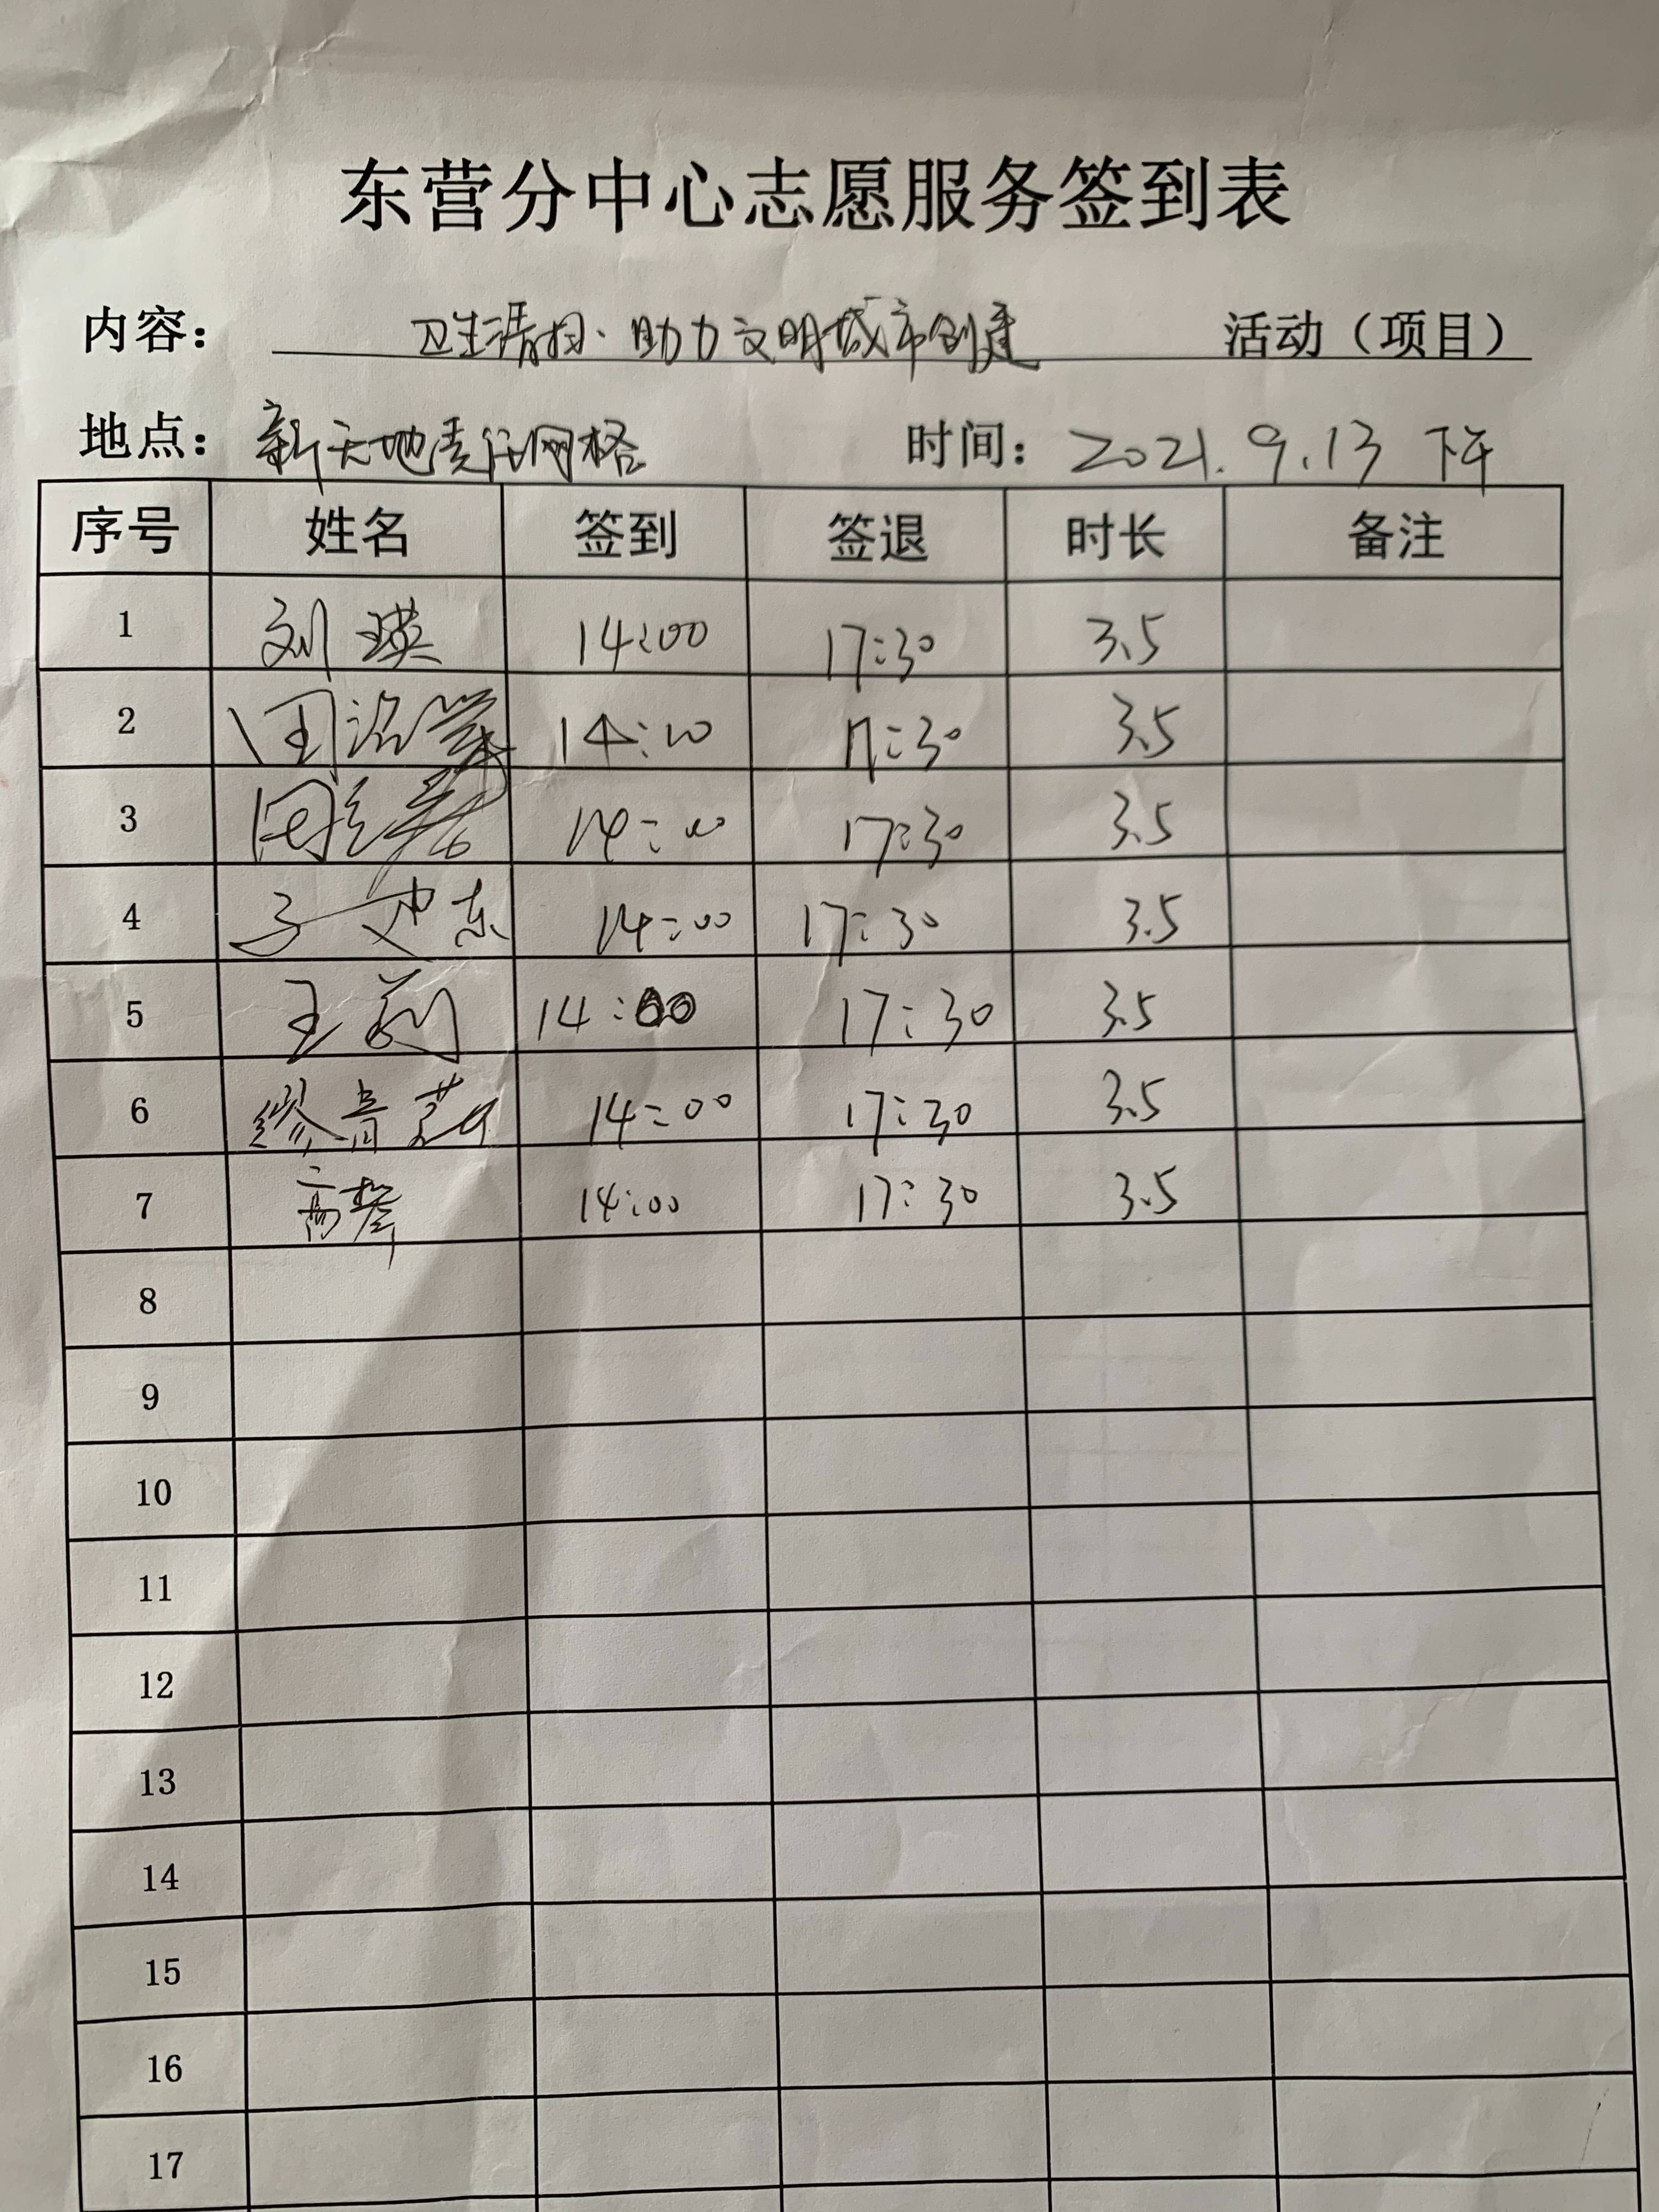 东营分中心志愿服务签到表
内容： 卫生清扫、助力文明城市创建 活动（项目）
地点：新天地责任网格 时间：2021.9.13 下午
序号 姓名 签到 签退 时长 备注
1 刘瑛 14:00 17:30 3.5
2 14:00 17:30 3.5
3 14:00 17:30 3.5
4 14:00 17:30 3.5
5 王莉 14:00 17:30 3.5
6 14:00 17:30 3.5
7 高攀 14:00 17:30 3.5
8
9
10
11
12
13
14
15
16
17